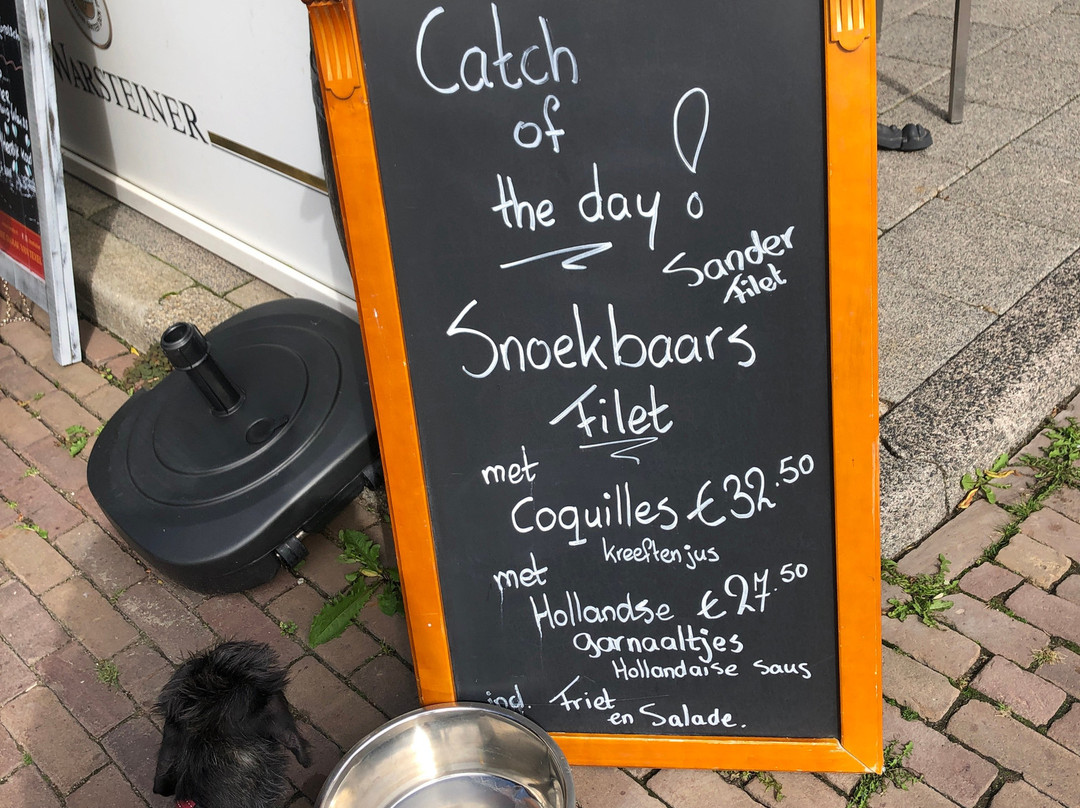 WARSTEINER
Catch
of
the day!
Sander
Filet
Snoekbaars
Filet
met
Coquilles €32.50
kreeften jus
met
Hollandse €27.50
garnaaltjes
Hollandaise Saus
incl. Friet
en Salade.